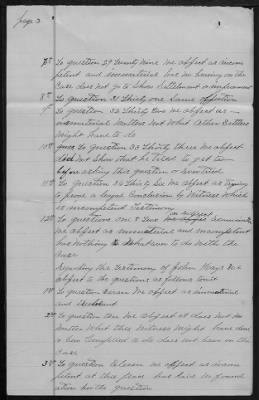 page 3
7th To question 29 Twenty Nine we object as incom
petent and immaterial has no bearing on the
Case does not go to Show Settlement or
8th To question 31 Thirty one Same objection
9th To question 32 Thirty two we object as
immaterial Matters not What Other Settlers
Might have to do
10th To question 33 Thirty three We object
did not Show that he tried to get to
before asking this question
11th To question 36 Thirty Six we object as trying
to prove a legal Conclusion by Witness which
is incompetent
12th To questions one & two
We object as immaterial and incompetent
has nothing to do with the
Case
Regarding the testimony of John Mays we
object to the questions as follows
1st To question Seven We object as immaterial
and
2nd To question ten We object as does not
matter What this Witness Might have done
or been Compelled to do does not bear on the
Case
3d To question Eleven we object as incom
petent at this place has laid no found
ation for the question